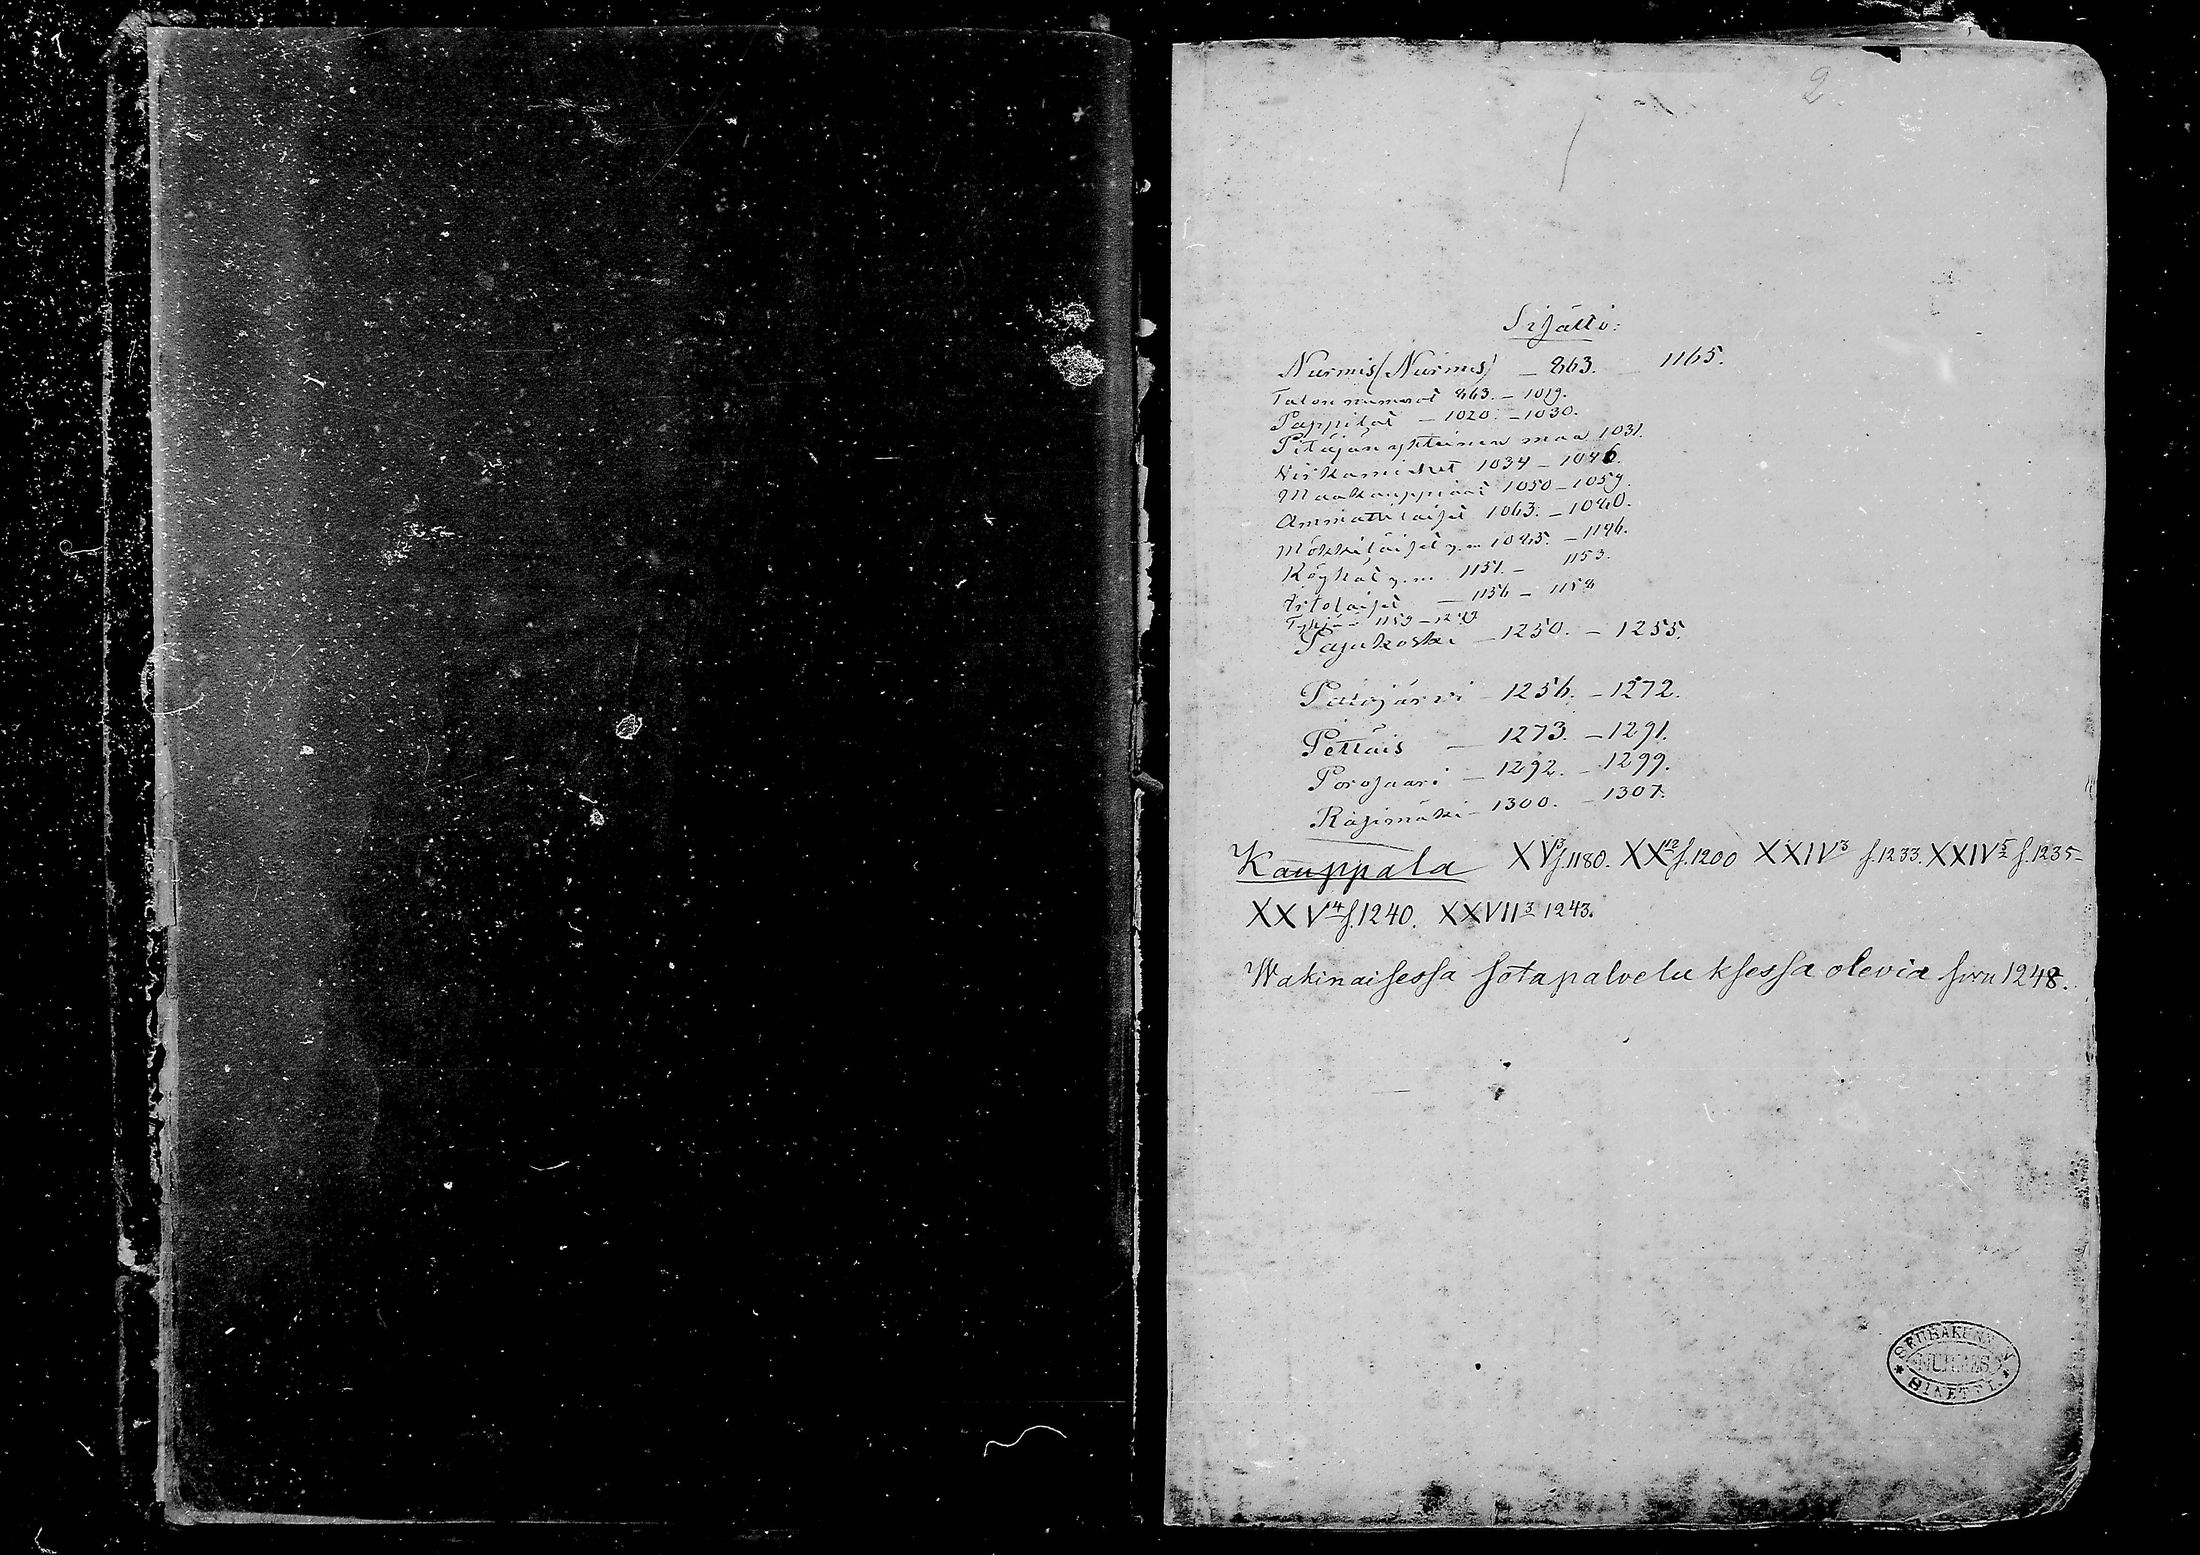 2
Sisältö:
Nurmis (Nurmes) — 863. — 1165.
Talon numerot 863. — 1019.
Pappilat — 1020. — 1030.
Pitäjän yhteinen maa 1031.
Virkamiehet 1034 — 1046.
Maakauppiaat 1050 — 1059.
Ammattilaiset 1063. — 1080.
Mökkiläiset y.m. 1085. — 1146.
Köyhät y.m. 1151. — 1153.
Irtolaiset — 1156 — 1158
1159 — 1249
Pajukoski — 1250. — 1255.
Palojärvi — 1256. — 1272.
Pettäis — 1273. — 1291.
Porosaari — 1292. — 1299.
Räsimäki — 1300. — 1307.
Kauppala XV³ s. 1180. XX¹² s. 1200 XXIV³ s. 1233. XXIV⁵ s. 1235
XXV¹⁴ s. 1240. XXVII³ 1243.
Wakinaisessa sotapalveluksessa olevia sivu 1248.
SEURAKUNNAN
NURMES
SINETTI